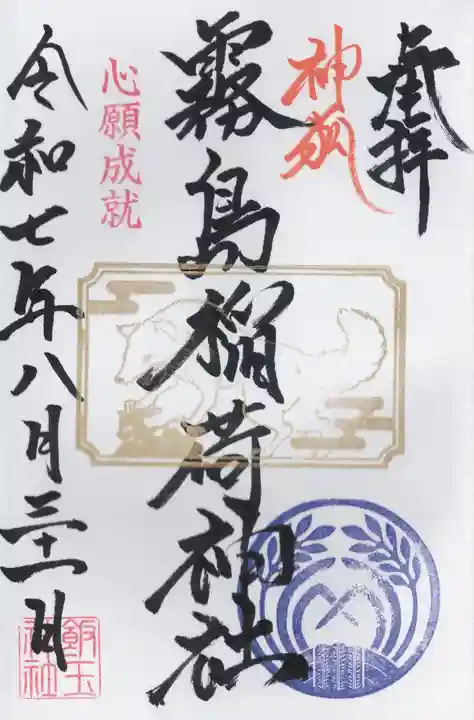 奉拝
神狐
霧島稲荷神社
心願成就
令和七年八月三十一日
飯玉
神社